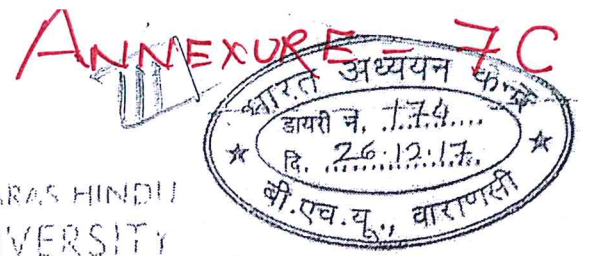 ANNEXURE = 7C
भारत अध्ययन केन्द्र
डायरी नं. 174
दि. 26.12.17
बी.एच.यू., वाराणसी
RAS HINDU
VERSITY